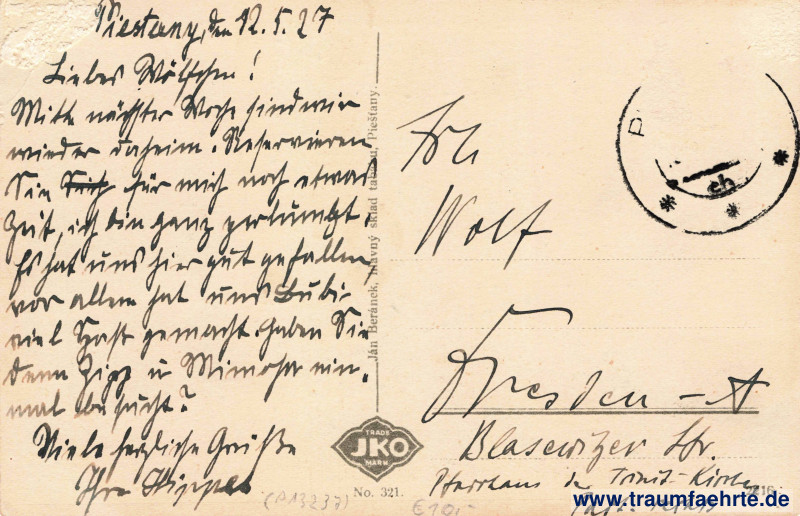 Piestany, den 12.5.27
Liebes Wölfchen!
Mitte nächster Woche sind wir
wieder daheim. Reservieren
Sie für mich noch etwas
Zeit, ich bin ganz zerlumpt.
Es hat uns hier gut gefallen,
vor allem hat uns Bubi
viel Spaß gemacht. Haben Sie
denn Zipp u Mimosa ein-
mal besucht?
Viele herzliche Grüße
Ihre
(P13237)
€10,-
Ján Beránek, hlavný sklad tabaku, Piešťany.
TRADE
JKO
MARK
No. 321.
P
ch
Frl.
Wolf
Dresden - A
Blasewitzer Str.
Pfarrhaus der Trinit-Kirche
www.traumfaehrte.de